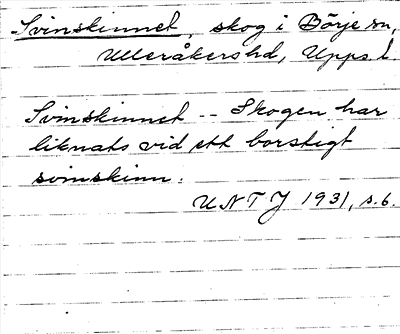 Svinskinnet, skog i Börje sn,
Ulleråkers hd, Upps. l.
Svinskinnet -- Skogen har
liknats vid ett borstigt
svinskinn.
UNTJ 1931, s. 6.